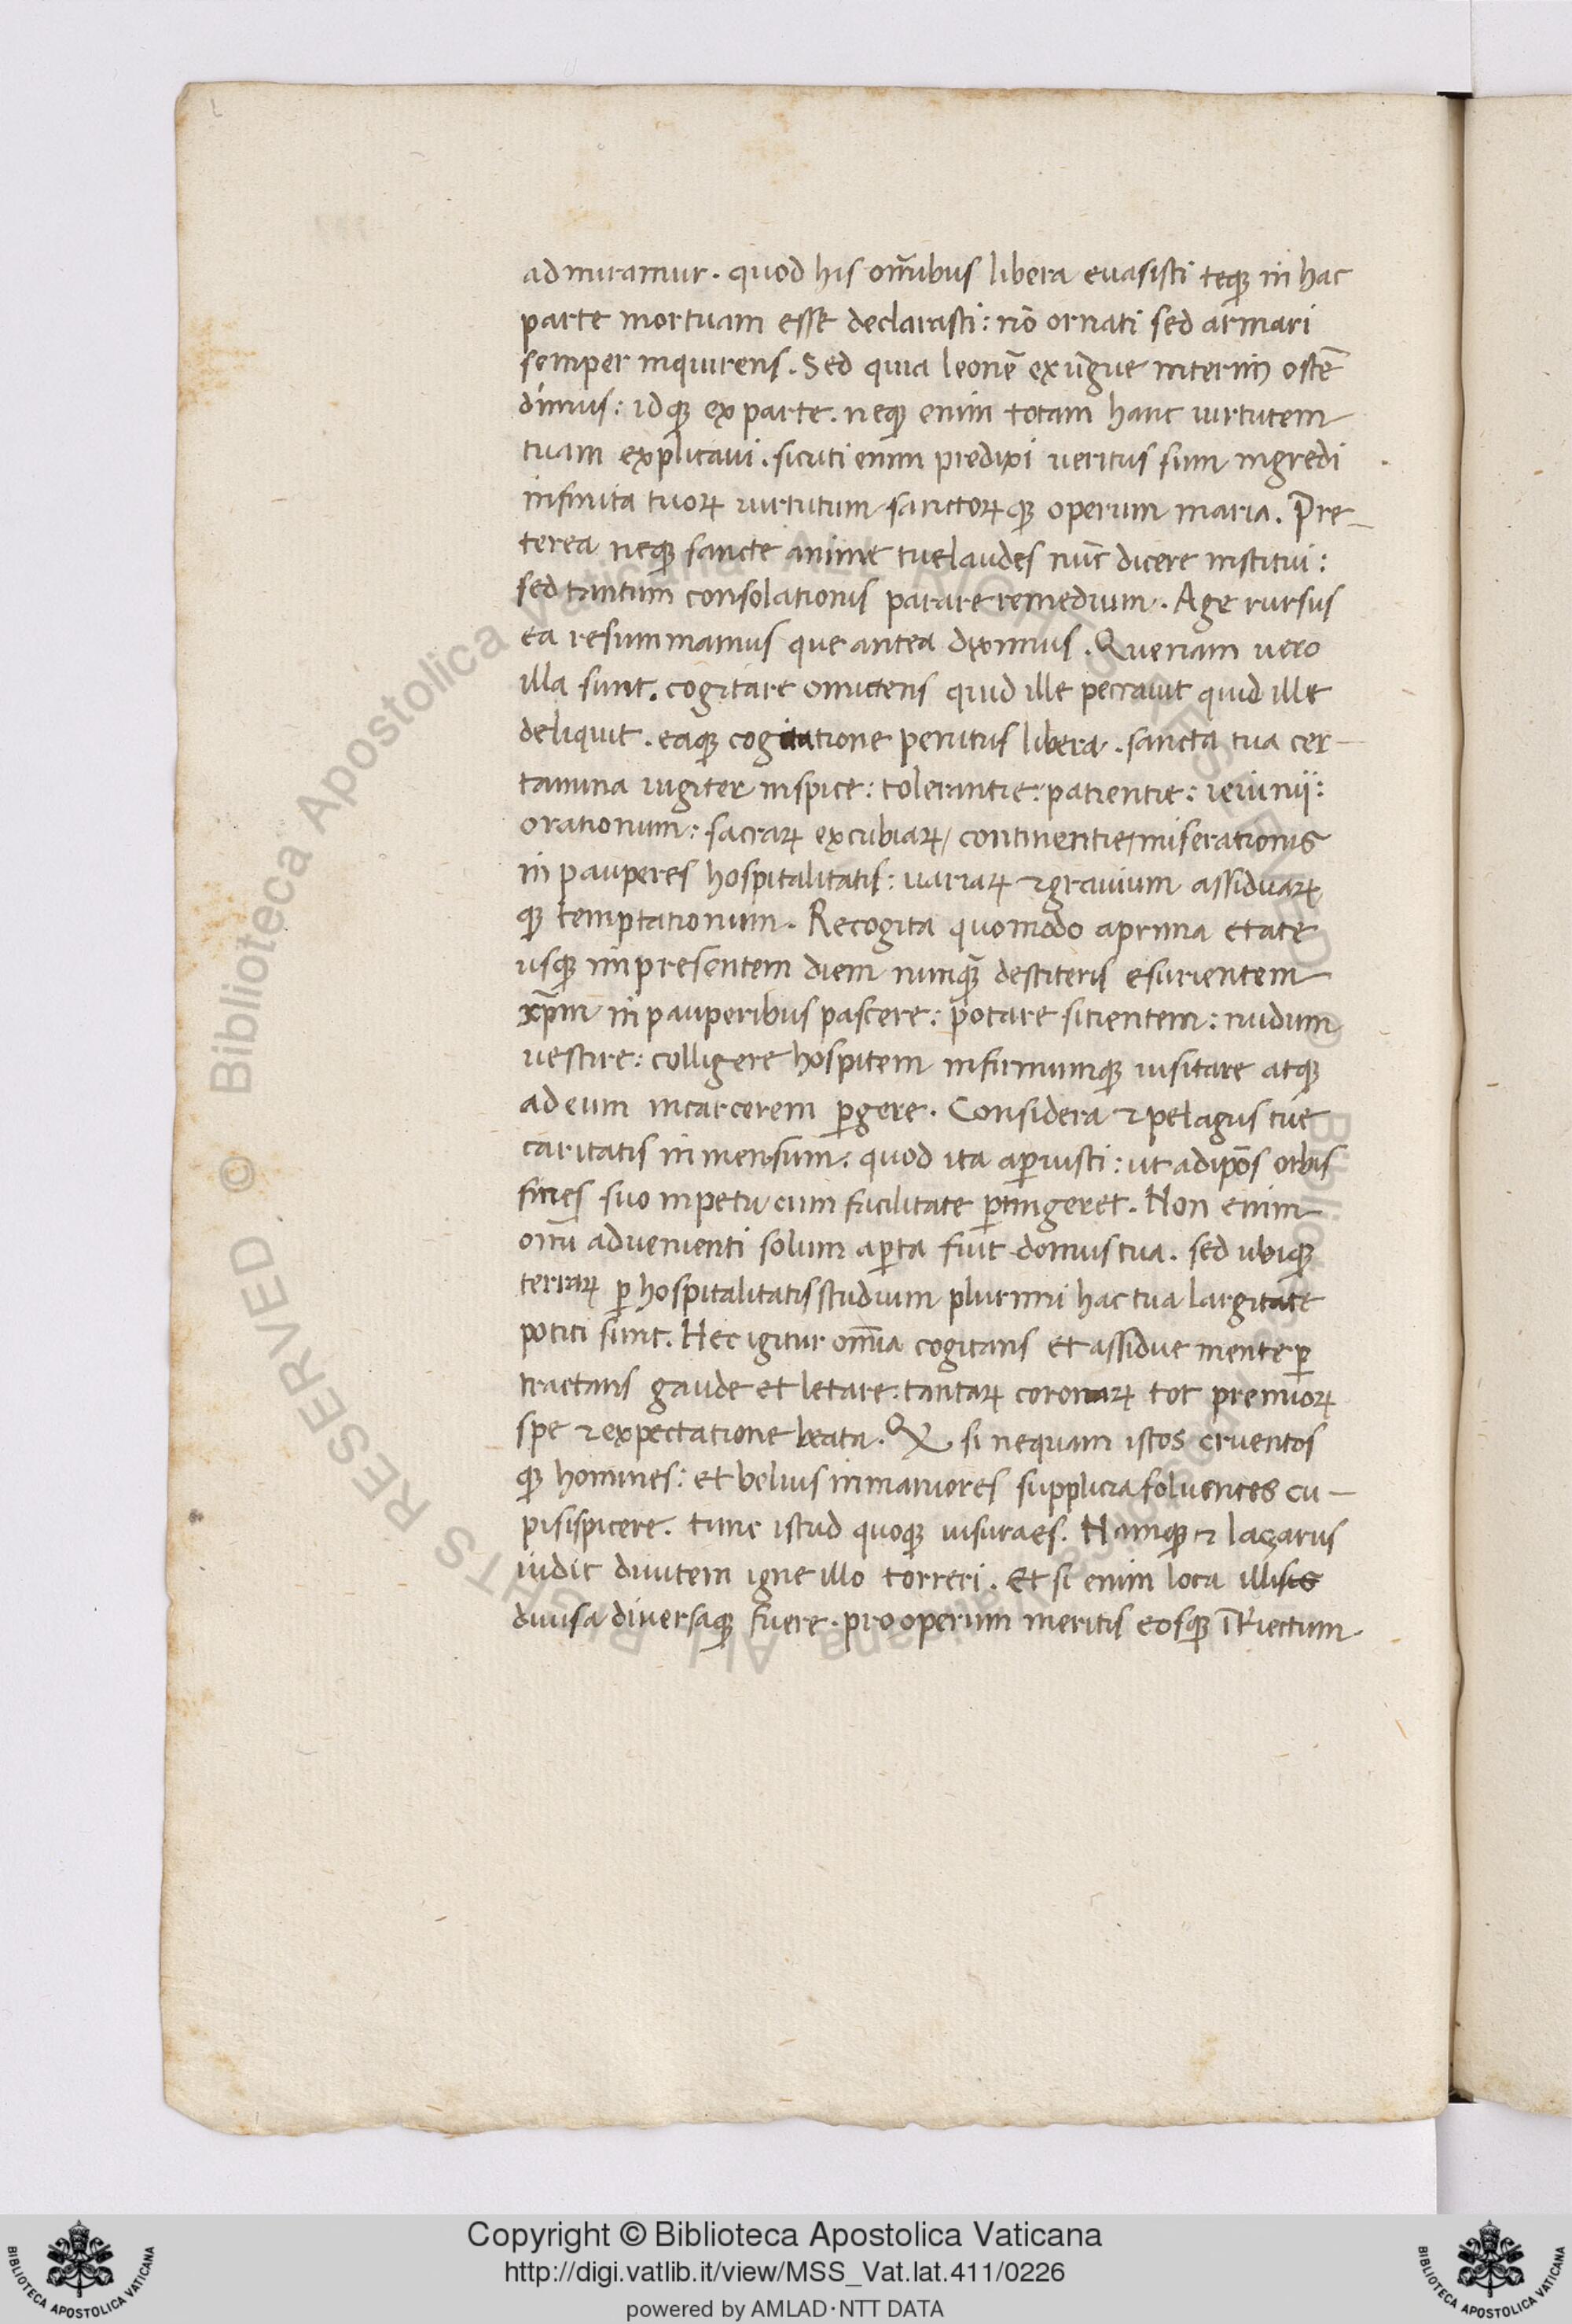 admiramur. quod his om̄ibus libera euasisti teqꝫ in hac
parte mortuam esse declarasti: nō ornati sed armari
semper inquirens. Sed quia leonē ex ūgue interim ostē
dimus: idqꝫ ex parte. neqꝫ enim totam hanc uirtutem
tuam explicaui. sicuti enim predixi ueritus sum ingredi
infinita tuoꝝ uirtutum sanctoꝝqꝫ operum maria. Pre-
terea neqꝫ sancte anime tue laudes nūc dicere institui:
sed tantum consolationis parare remedium. Age rursus
ea resummamus que antea diximus. Quenam uero
illa sunt. cogitare omictens quid ille peccauit quid ille
deliquit. eaqꝫ cogitatione penitus libera. sancta tua cer-
tamina iugiter inspice: tolerantie: patientie: ieiunii:
orationum: sacraꝝ excubiaꝝ/ continentie/ miserationis
in pauperes hospitalitatis: uariaꝝ ⁊ grauium assiduaꝝ
qꝫ temptationum. Recogita quomodo a prima etate
usqꝫ in presentem diem nunqꝫ̄ destiteris esurientem
xp̄m in pauperibus pascere: potare sitientem: nudum
uestire: colligere hospitem infirmumqꝫ uisitare atqꝫ
ad eum in carcerem ꝑgere. Considera ⁊ pelagus tue
caritatis inmensum: quod ita aꝑuisti: ut ad ip̄os orbis
fines suo inpetu cum facilitate ꝑtingeret. Non enim
om̄i aduenienti solum aꝑta fuit domus tua. sed ubiqꝫ
terraꝝ ꝑ hospitalitatis studium plurimi hac tua largitate
potiti sunt. Hec igitur om̄ia cogitans et assidue mente ꝑ
tractans gaude et letare: tantaꝝ coronaꝝ tot premioꝝ
spe ⁊ expectatione beata. Qꝫ si nequam istos cruentos
qꝫ homines: et beluis inmaniores supplicia soluentes cu-
pis ispicere. tunc istud quoqꝫ uisura es. Namqꝫ ⁊ laçarus
uidit diuitem igne illo torreri. Et si enim loca illis
diuisa diuersaqꝫ fuere. pro operum meritis eosqꝫ
Copyright © Biblioteca Apostolica Vaticana
http://digi.vatlib.it/view/MSS_Vat.lat.411/0226
powered by AMLAD·NTT DATA